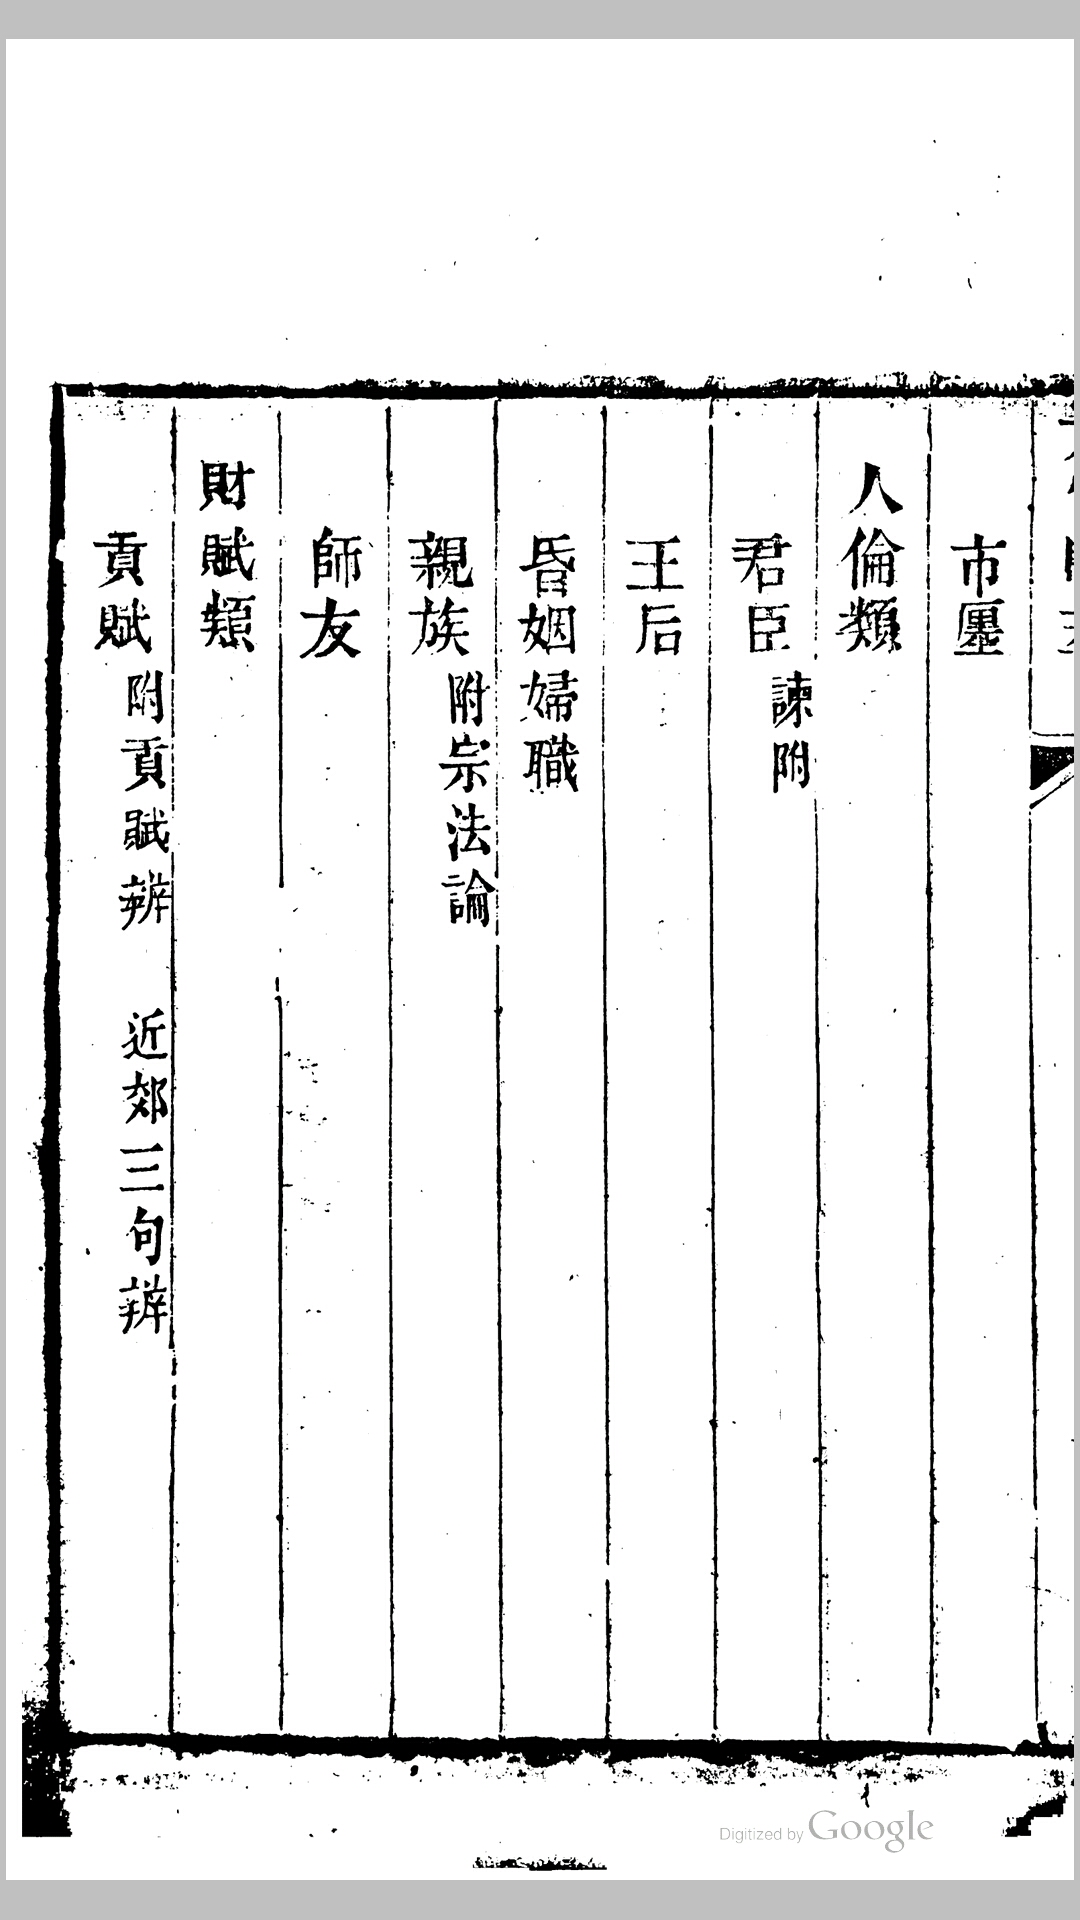 市㕓
人倫類
君臣諫附
王后
昏姻婦職
親族附宗法論
師友
財賦類
貢賦附貢賦辨 近郊三句辨
Digitized by Google